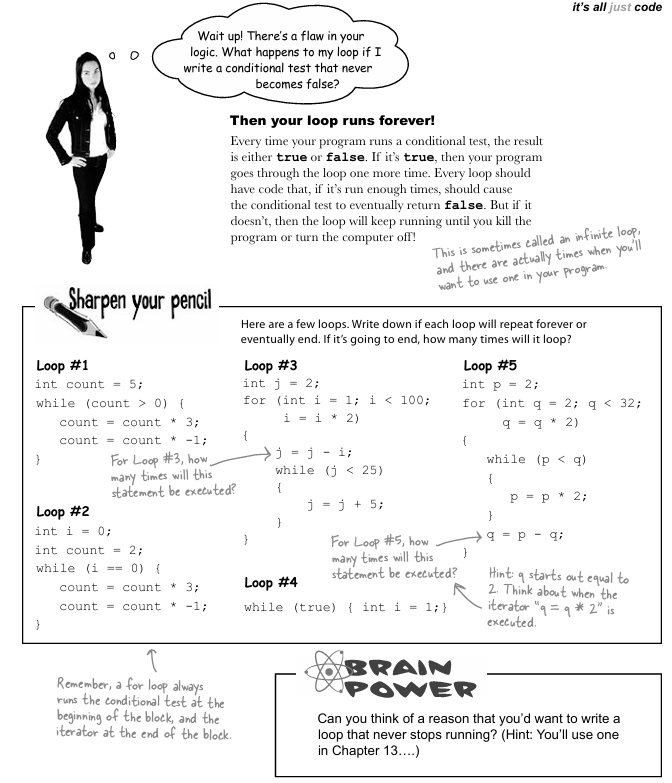 it's all just code
Wait up! There's a flaw in your
logic. What happens to my loop if I
write a conditional test that never
becomes false?
Then your loop runs forever!
Every time your program runs a conditional test, the result
is either true or false. If it's true, then your program
goes through the loop one more time. Every loop should
have code that, if it's run enough times, should cause
the conditional test to eventually return false. But if it
doesn't, then the loop will keep running until you kill the
program or turn the computer off!
This is sometimes called an infinite loop,
and there are actually times when you'll
want to use one in your program.
Sharpen your pencil
Here are a few loops. Write down if each loop will repeat forever or
eventually end. If it's going to end, how many times will it loop?
Loop #1
int count = 5;
while (count > 0) {
count = count * 3;
count = count * -1;
}
Loop #2
int i = 0;
int count = 2;
while (i == 0) {
count = count * 3;
count = count * -1;
}
Loop #3
int j = 2;
for (int i = 1; i < 100;
i = i * 2)
{
j = j - i;
while (j < 25)
{
j = j + 5;
}
}
For Loop #3, how
many times will this
statement be executed?
Loop #4
while (true) { int i = 1;}
Loop #5
int p = 2;
for (int q = 2; q < 32;
q = q * 2)
{
while (p < q)
{
p = p * 2;
}
q = p - q;
}
For Loop #5, how
many times will this
statement be executed?
Hint: q starts out equal to
2. Think about when the
iterator "q = q * 2" is
executed.
Remember, a for loop always
runs the conditional test at the
beginning of the block, and the
iterator at the end of the block.
BRAIN
POWER
Can you think of a reason that you'd want to write a
loop that never stops running? (Hint: You'll use one
in Chapter 13….)